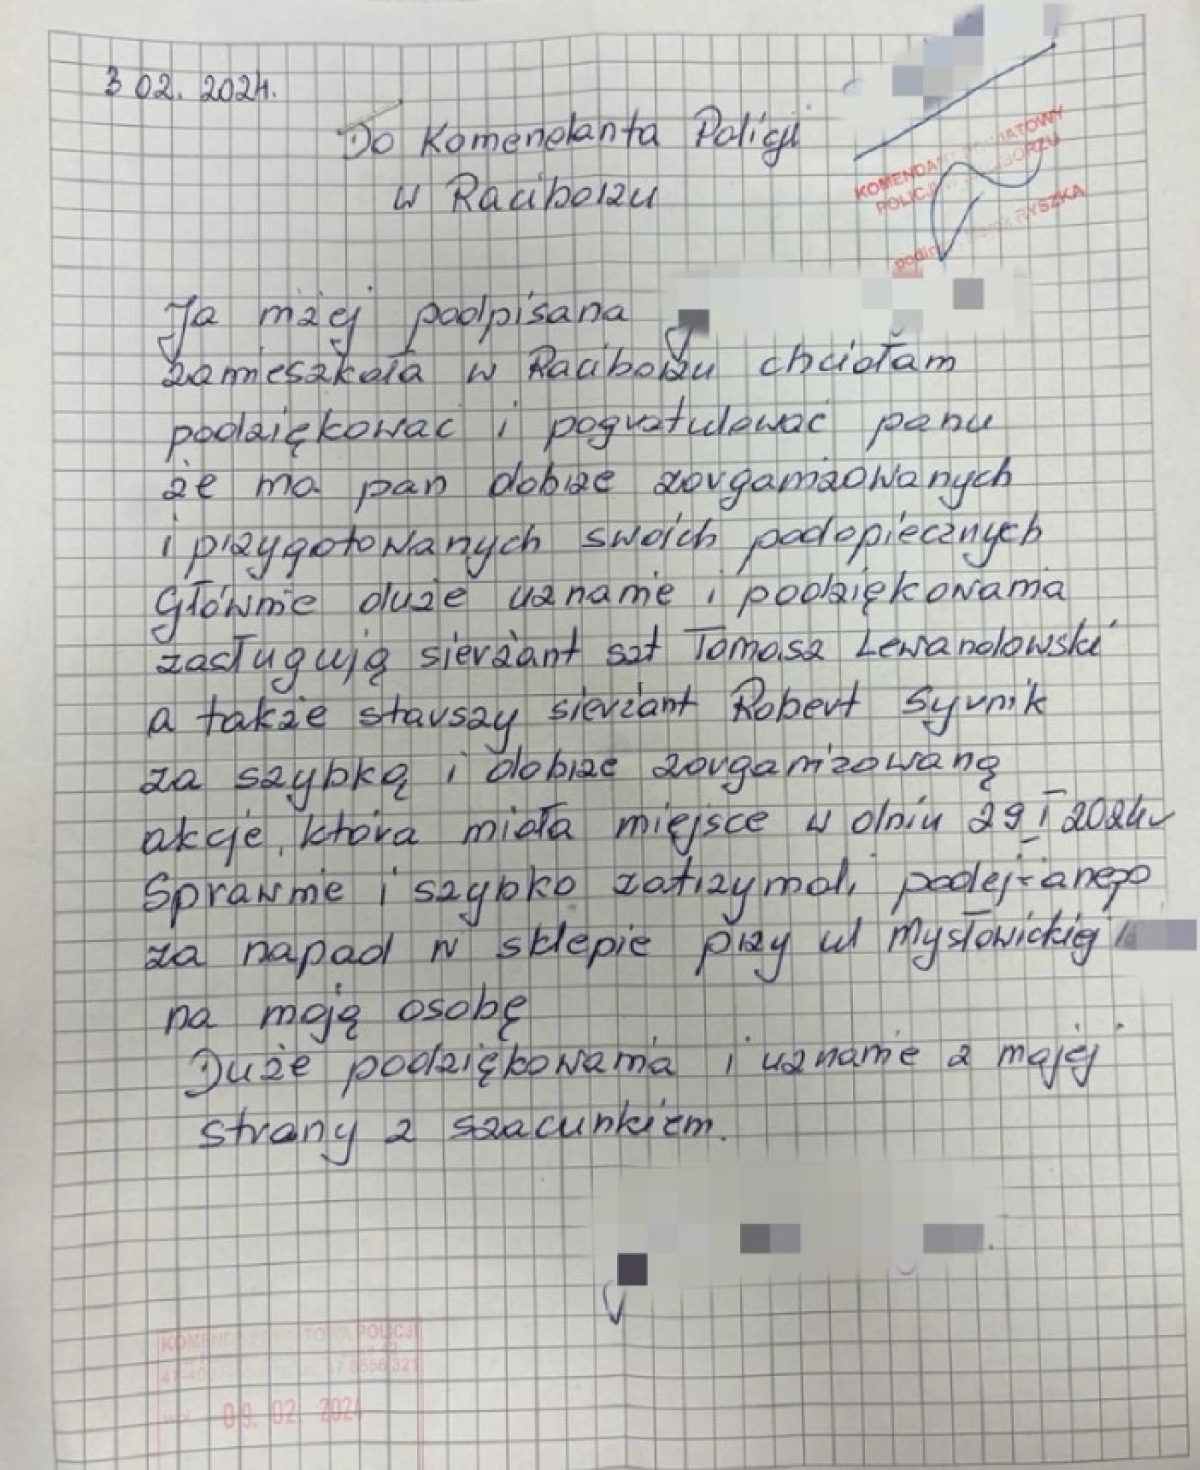 3 02. 2024.
Do Komendanta Policji
w Raciborzu
KOMENDANT POWIATOWY
POLICJI W RACIBORZU
RYSZKA
Ja niżej podpisana
zamieszkała w Raciborzu chciałam
podziękować i pogratulować panu
że ma pan dobrze zorganizowanych
i przygotowanych swoich podopiecznych
Głównie duże uznanie i podziękowania
zasługują sierżant szt Tomasz Lewandowski
a także starszy sierżant Robert Syrnik
za szybką i dobrze zorganizowaną
akcje, która miała miejsce w dniu 29 I 2024r
Sprawnie i szybko zatrzymali podejżanego
za napad w sklepie przy ul Mysłowickiej
na moją osobę
Duże podziękowania i uznanie z mojej
strany z szacunkiem.
POLICJI
09. 02. 2024